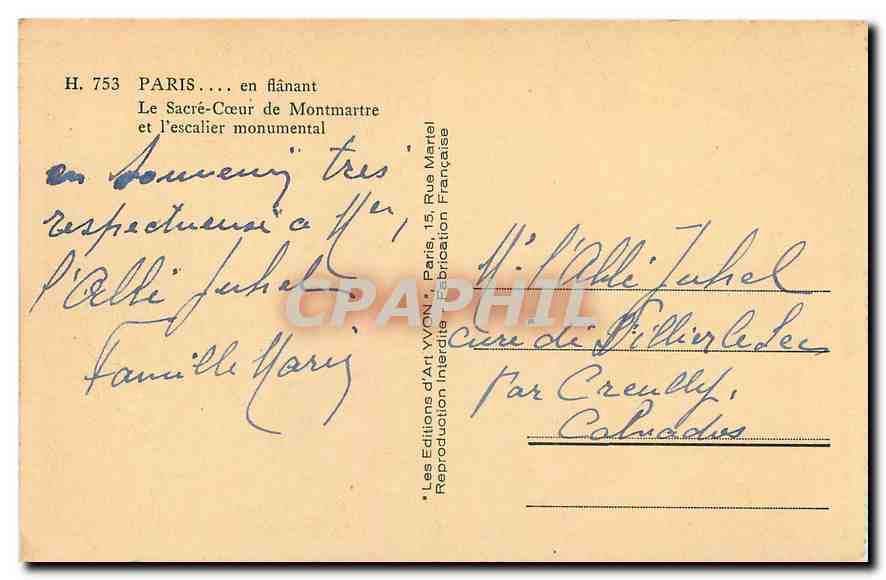 H. 753 PARIS.... en flânant
Le Sacré-Cœur de Montmartre
et l'escalier monumental
en souvenir tres
respectueuse a Mr,
l'Abbé Juhel
Famille Marie
"Les Editions d'Art YVON", Paris, 15, Rue Martel
Reproduction Interdite Fabrication Française
CPAPHIL
Mr l'Abbé Juhel
cure de Villier le Sec
par Creully,
Calvados